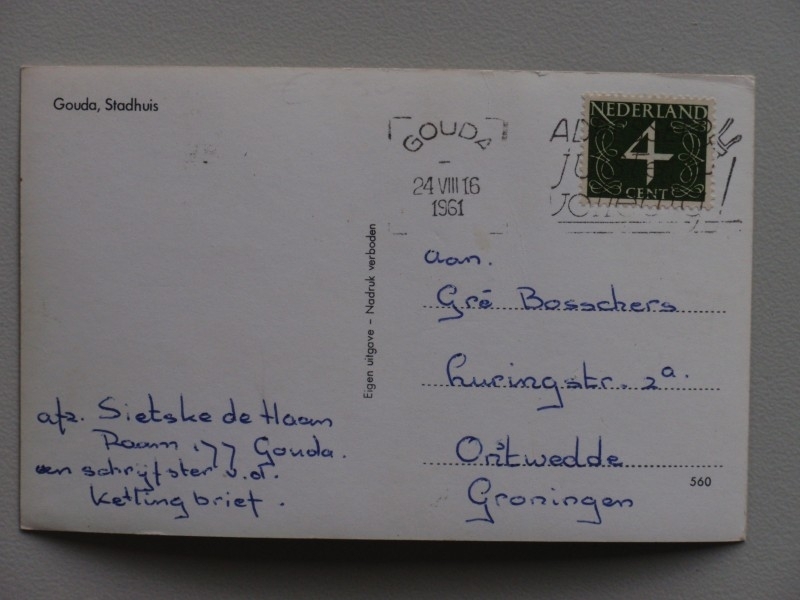 Gouda, Stadhuis
GOUDA
24 VIII 16
1961
NEDERLAND
4
CENT
Eigen uitgave – Nadruk verboden
aan.
Gré Bosschers
2a.
Ontwedde
Groningen
560
afz. Sietske de Haan
Raam 177 Gouda.
een schrijfster v.d.
Kettingbrief.